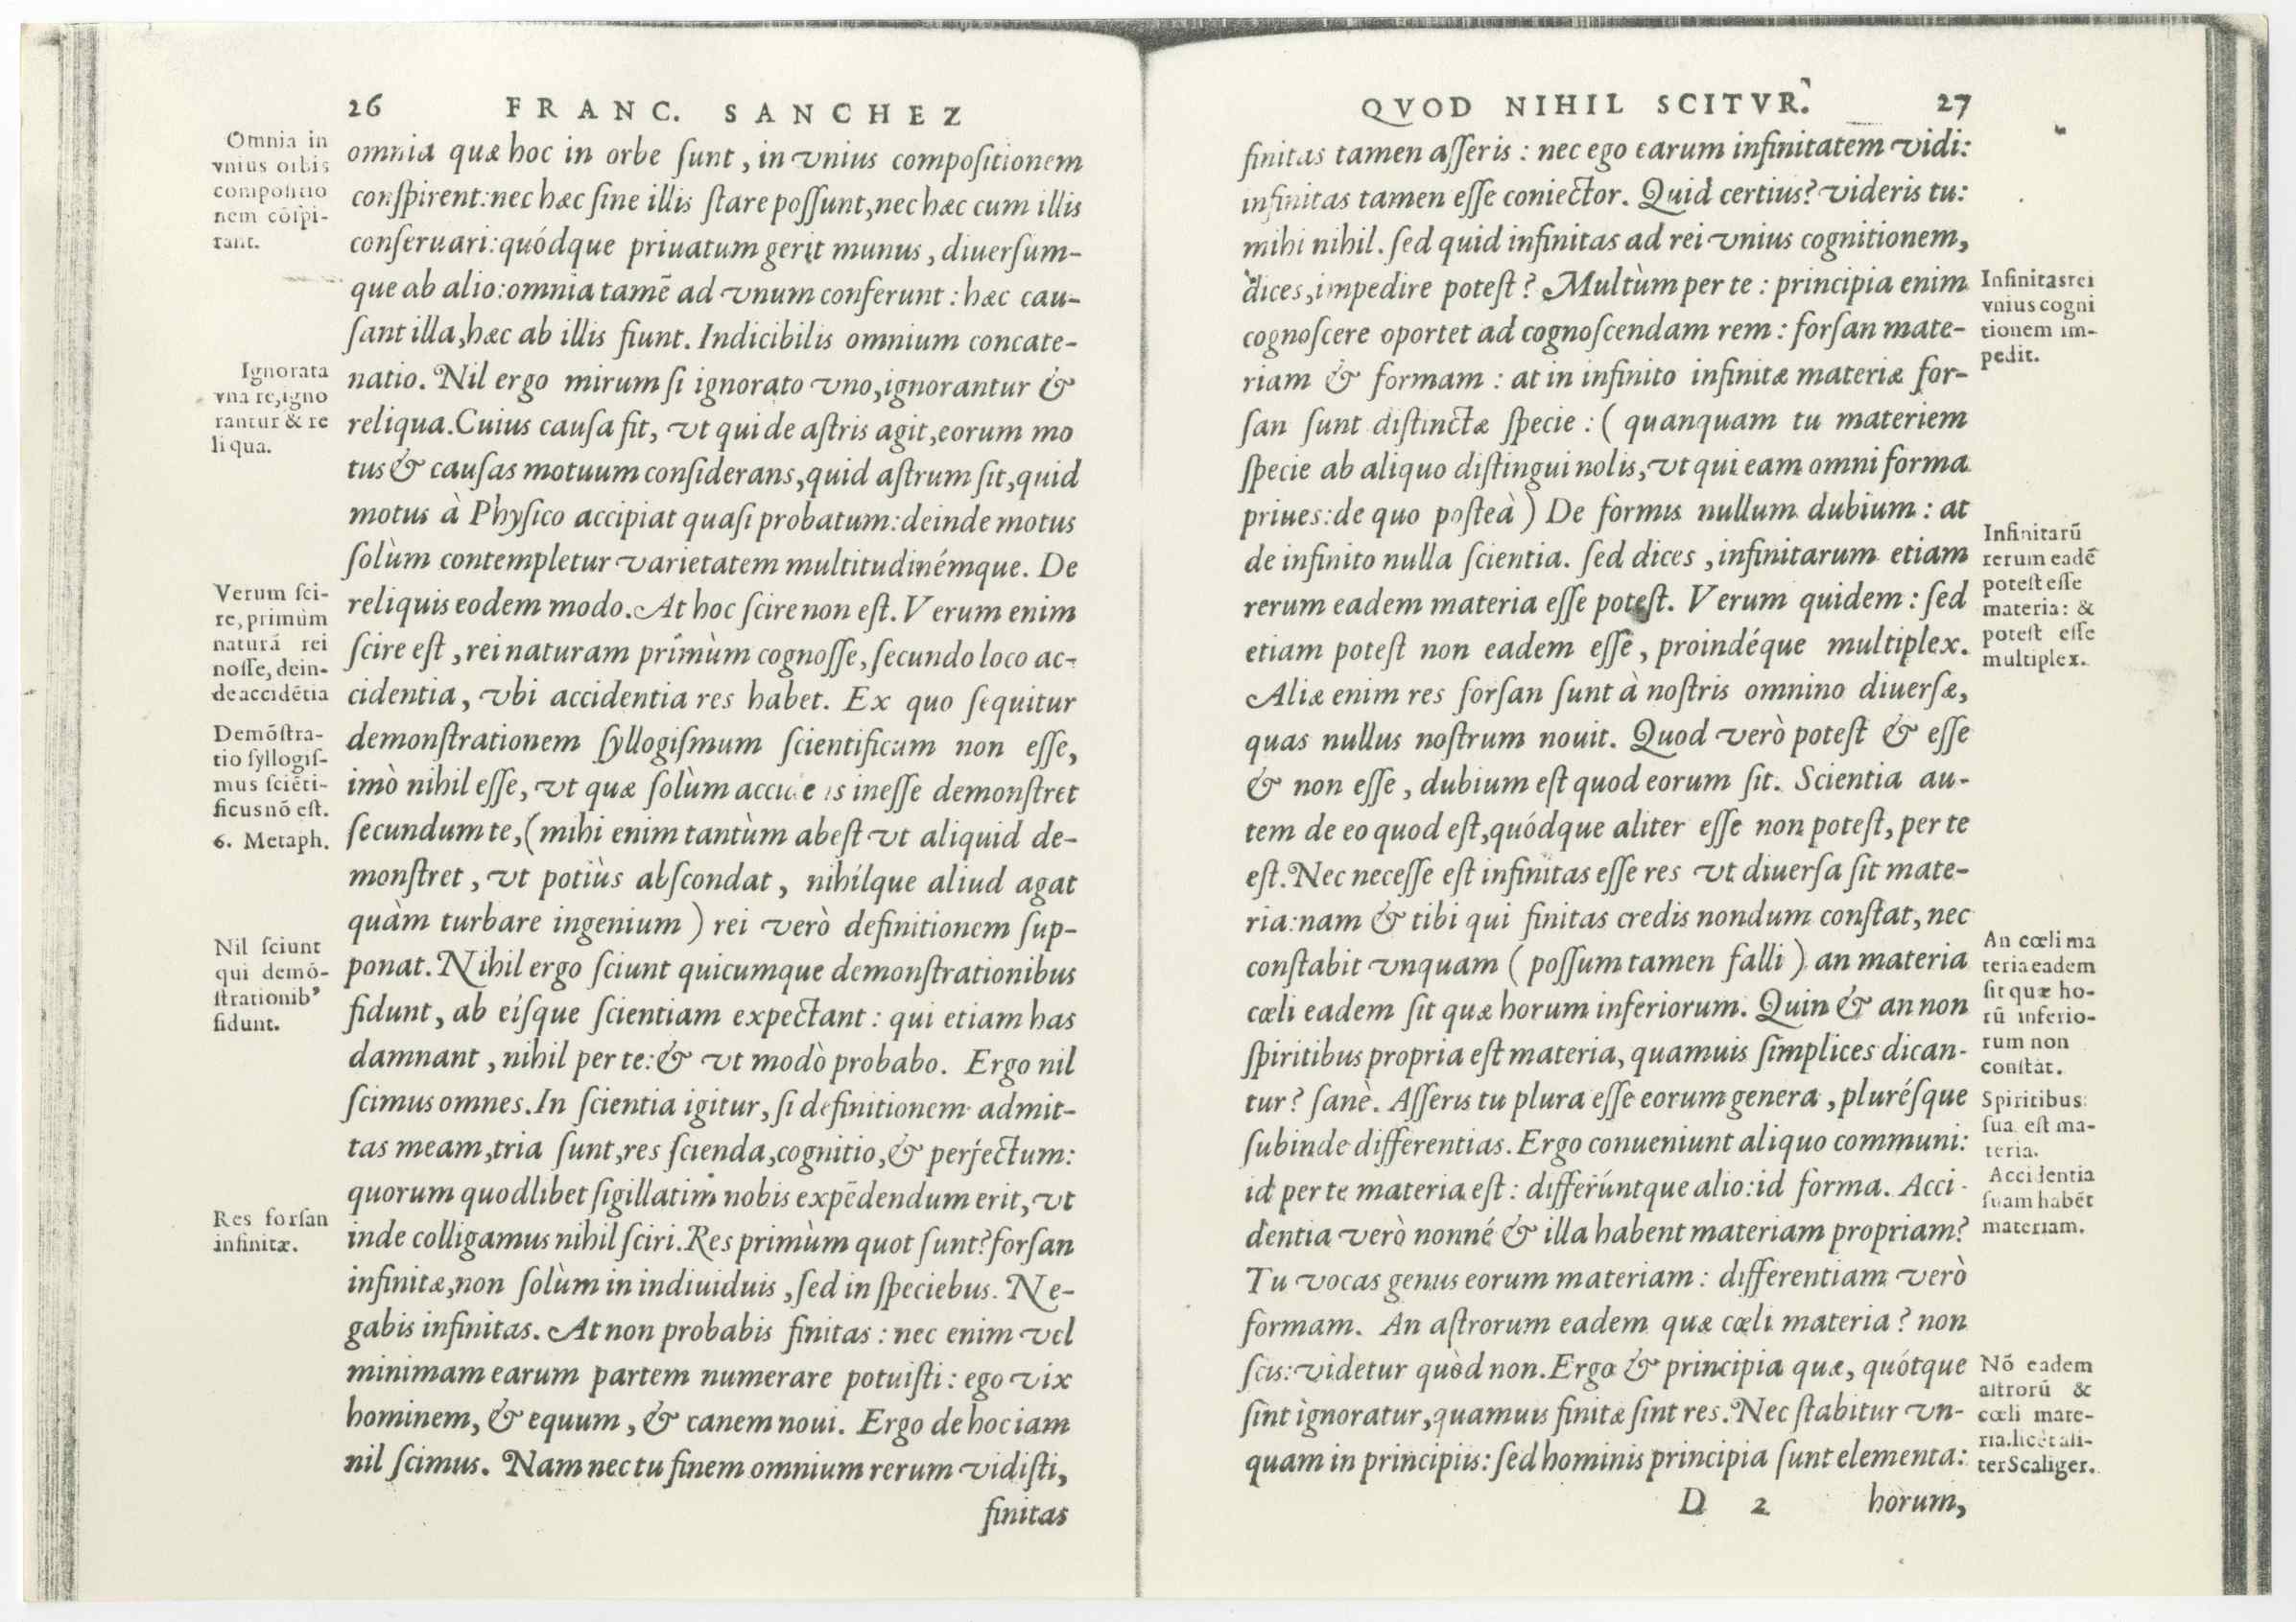 26 FRANC. SANCHEZ
Omnia in
vnius orbis
compositio
nem cōspi-
rant.
Ignorata
vna re, igno
rantur & re
liqua.
Verum sci-
re, primùm
naturá rei
nosse, dein-
de accidētia
Demōstra-
tio syllogis-
mus sciēti-
ficus nō est.
6. Metaph.
Nil sciunt
qui demō-
strationib⁹
fidunt.
Res forsan
infinitæ.
omnia quæ hoc in orbe ſunt, in vnius compoſitionem
conſpirent: nec hæc ſine illis ſtare poſſunt, nec hæc cum illis
conſeruari: quódque priuatum gerit munus, diuerſum-
que ab alio: omnia tamē ad vnum conferunt: hæc cau-
ſant illa, hæc ab illis fiunt. Indicibilis omnium concate-
natio. Nil ergo mirum ſi ignorato vno, ignorantur &
reliqua. Cuius cauſa fit, vt qui de aſtris agit, eorum mo
tus & cauſas motuum conſiderans, quid aſtrum ſit, quid
motus à Phyſico accipiat quaſi probatum: deinde motus
ſolùm contempletur varietatem multitudinémque. De
reliquis eodem modo. At hoc ſcire non eſt. Verum enim
ſcire eſt, rei naturam primùm cognoſſe, ſecundo loco ac-
cidentia, vbi accidentia res habet. Ex quo ſequitur
demonſtrationem ſyllogiſmum ſcientificum non eſſe,
imò nihil eſſe, vt quæ ſolùm ineſſe demonſtret
ſecundum te, (mihi enim tantùm abeſt vt aliquid de-
monſtret, vt potiùs abſcondat, nihílque aliud agat
quàm turbare ingenium) rei verò definitionem ſup-
ponat. Nihil ergo ſciunt quicumque demonſtrationibus
fidunt, ab eíſque ſcientiam expectant: qui etiam has
damnant, nihil per te: & vt modò probabo. Ergo nil
ſcimus omnes. In ſcientia igitur, ſi definitionem admit-
tas meam, tria ſunt, res ſcienda, cognitio, & perfectum:
quorum quodlibet ſigillatim nobis expēdendum erit, vt
inde colligamus nihil ſciri. Res primùm quot ſunt? forſan
infinitæ, non ſolùm in indiuiduis, ſed in ſpeciebus. Ne-
gabis infinitas. At non probabis finitas: nec enim vel
minimam earum partem numerare potuiſti: ego vix
hominem, & equum, & canem noui. Ergo de hoc iam
nil ſcimus. Nam nec tu finem omnium rerum vidiſti,
finitas
QVOD NIHIL SCITVR. 27
finitas tamen aſſeris: nec ego earum infinitatem vidi:
infinitas tamen eſſe coniector. Quid certius? videris tu:
mihi nihil. ſed quid infinitas ad rei vnius cognitionem,
dices, impedire poteſt? Multùm per te: principia enim
cognoſcere oportet ad cognoſcendam rem: forſan mate-
riam & formam: at in infinito infinitæ materiæ for-
ſan ſunt diſtinctæ ſpecie: (quanquam tu materiem
ſpecie ab aliquo diſtingui nolis, vt qui eam omni forma
priues: de quo poſteà) De formis nullum dubium: at
de infinito nulla ſcientia. ſed dices, infinitarum etiam
rerum eadem materia eſſe poteſt. Verum quidem: ſed
etiam poteſt non eadem eſſe, proindéque multiplex.
Aliæ enim res forſan ſunt à noſtris omnino diuerſæ,
quas nullus noſtrum nouit. Quod verò poteſt & eſſe
& non eſſe, dubium eſt quod eorum ſit. Scientia au-
tem de eo quod eſt, quódque aliter eſſe non poteſt, per te
eſt. Nec neceſſe eſt infinitas eſſe res vt diuerſa ſit mate-
ria: nam & tibi qui finitas credis nondum conſtat, nec
conſtabit vnquam (poſſum tamen falli) an materia
cœli eadem ſit quæ horum inferiorum. Quin & an non
ſpiritibus propria eſt materia, quamuis ſimplices dican-
tur? ſanè. Aſſeris tu plura eſſe eorum genera, pluréſque
ſubinde differentias. Ergo conueniunt aliquo communi:
id per te materia eſt: differúntque alio: id forma. Acci-
dentia verò nonné & illa habent materiam propriam?
Tu vocas genus eorum materiam: differentiam verò
formam. An aſtrorum eadem quæ cœli materia? non
ſcis: videtur quòd non. Ergo & principia quæ, quótque
ſint ignoratur, quamuis finitæ ſint res. Nec ſtabitur vn-
quam in principiis: ſed hominis principia ſunt elementa:
D 2 horum,
Infinitas rei
vnius cogni
tionem im-
pedit.
Infinitarū
rerum eadē
potest esse
materia: &
potest esse
multiplex.
An cœli ma
teria eadem
sit quæ ho-
rū inferio-
rum non
constat.
Spiritibus
sua est ma-
teria.
Accidentia
suam habēt
materiam.
Nō eadem
astrorū &
cœli mate-
ria. licèt ali-
ter Scaliger.